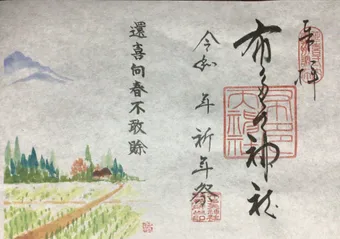 奉拝
布多天神社
令和　年　祈年祭
還喜向春不敢賖